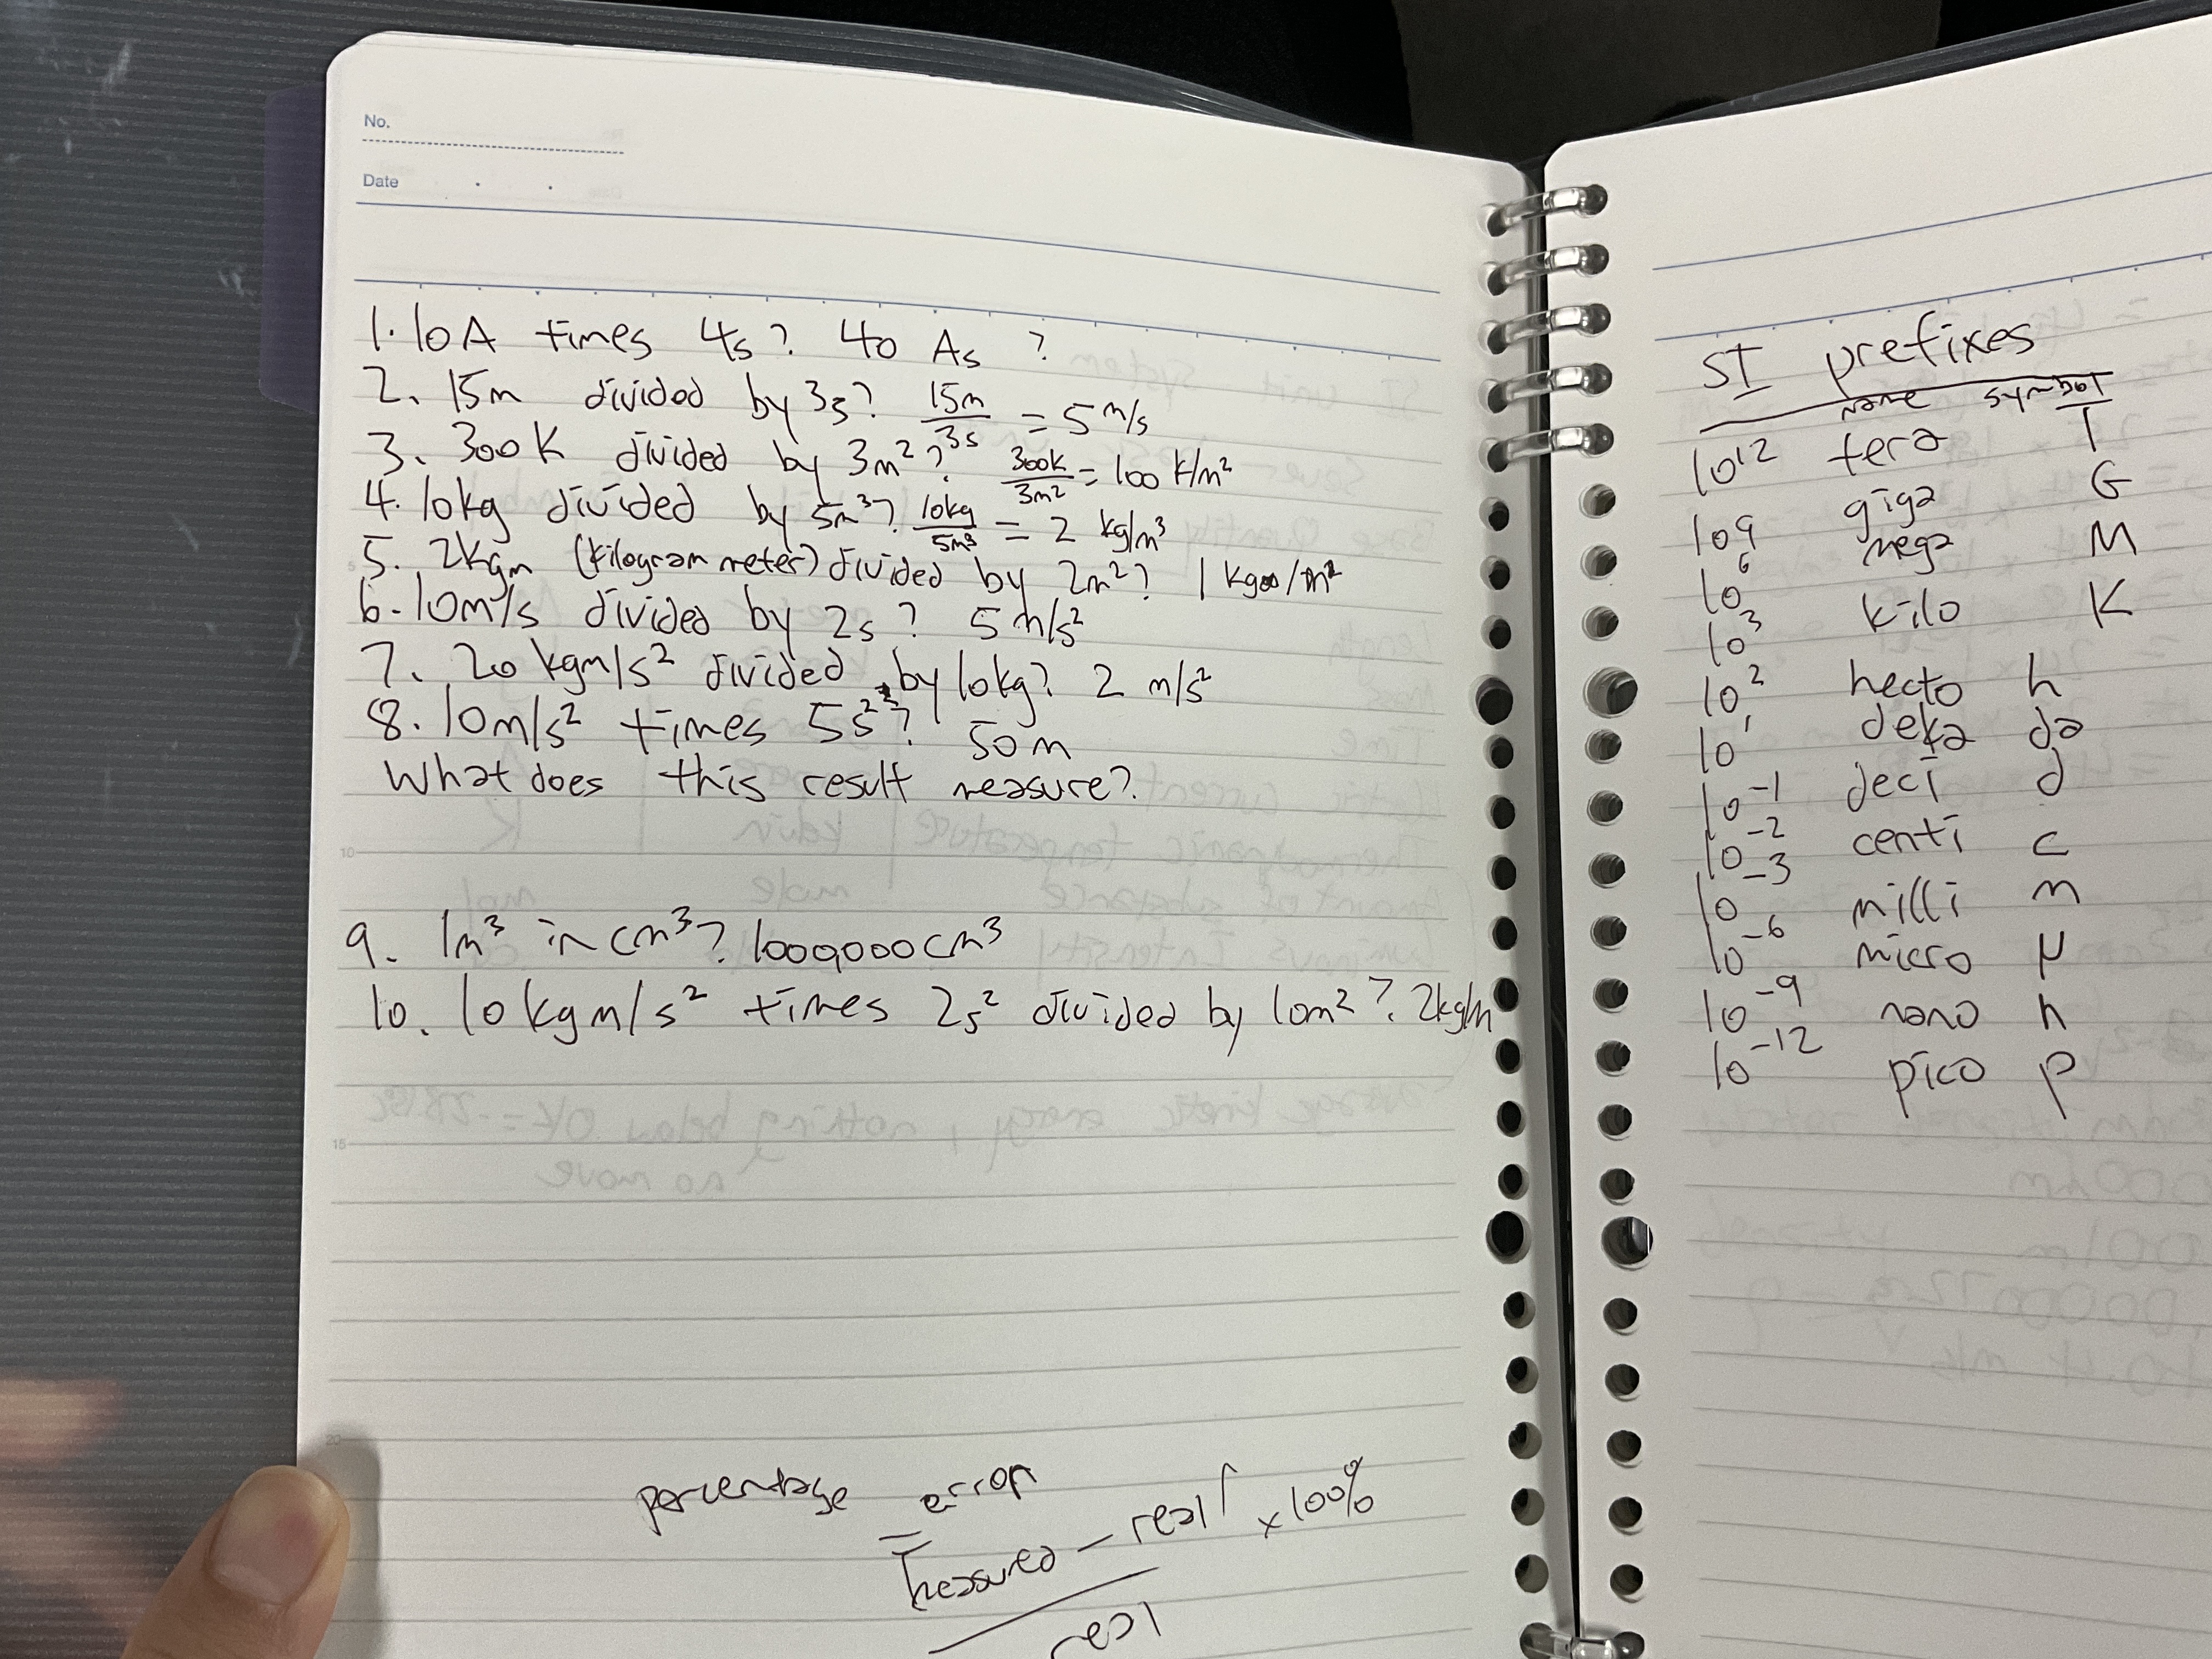 No.
Date
1. 10A times 4s? 40 As ?
2. 15m divided by 3s? 15m/3s = 5 m/s
3. 300K divided by 3m²? 300K/3m² = 100 K/m²
4. 10kg divided by 5m³? 10kg/5m³ = 2 kg/m³
5. 2kgm (kilogram meter) divided by 2m²? 1 kg/m
6. 10m/s divided by 2s? 5 m/s²
7. 20 kgm/s² divided by 10kg? 2 m/s²
8. 10m/s² times 5s²? 50m
What does this result measure?
10
9. 1m³ in cm³? 1000,000cm³
10. 10kgm/s² times 2s² divided by 10m²? 2kg/m
15
20
percentage error
= |measured - real| x 100%
real
SI prefixes
name symbol
10¹² tera T
10⁹ giga G
10⁶ mega M
10³ kilo K
10² hecto h
10¹ deka da
10⁻¹ deci d
10⁻² centi c
10⁻³ milli m
10⁻⁶ micro μ
10⁻⁹ nano n
10⁻¹² pico p